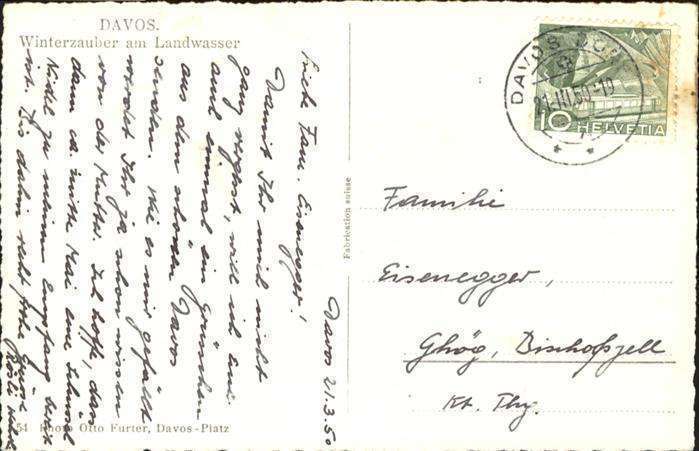 DAVOS.
Winterzauber am Landwasser
Davos 21.3.50
Liebe Fam. Eisenegger!
Damit Ihr mich nicht
ganz vergisst, will ich Euch
auch einmal ein Grüsschen
aus dem schönen Davos
senden. Wie es mir gefällt
werdet Ihr ja schon wissen
von der Mutter. Ich hoffe, dass
dann ca. mitte Mai eine
zu meinem Empfang bereit
ist. Bis dahin recht frohe Grüsse
54 Photo Otto Furter, Davos-Platz
Fabrication suisse
DAVOS DORF
21.III.50-19
10 HELVETIA
Familie
Eisenegger,
Ghög, Bischofszell
Kt. Thg.